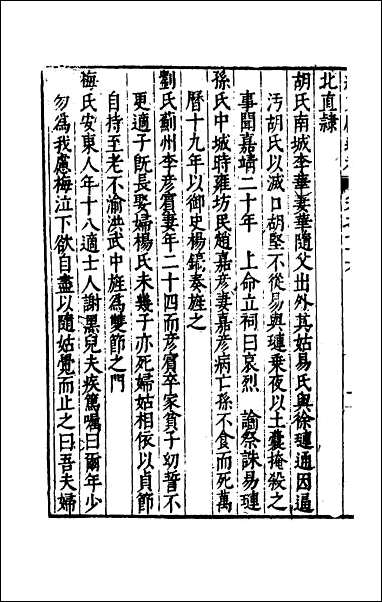 北直隷
胡氏南城李華妻華隨父出外其姑易氏與徐璉通因逼
汚胡氏以滅口胡堅不從易與璉乘夜以土囊掩殺之
事聞嘉靖二十年　上命立祠曰哀烈　諭祭誅易璉
孫氏中城時雍坊民趙嘉彦妻嘉彦病亡孫不食而死萬
曆十九年以御史楊鎬奏旌之
劉氏薊州李彦賓妻年二十四而彦賓卒家貧子幼誓不
更適子旣長娶婦楊氏未幾子亦死婦姑相依以貞節
自持至老不渝洪武中旌為雙節之門
梅氏安東人年十八適士人謝黑兒夫疾篤囑曰爾年少
勿為我慮梅泣下欲自盡以隨姑覺而止之曰吾夫婦